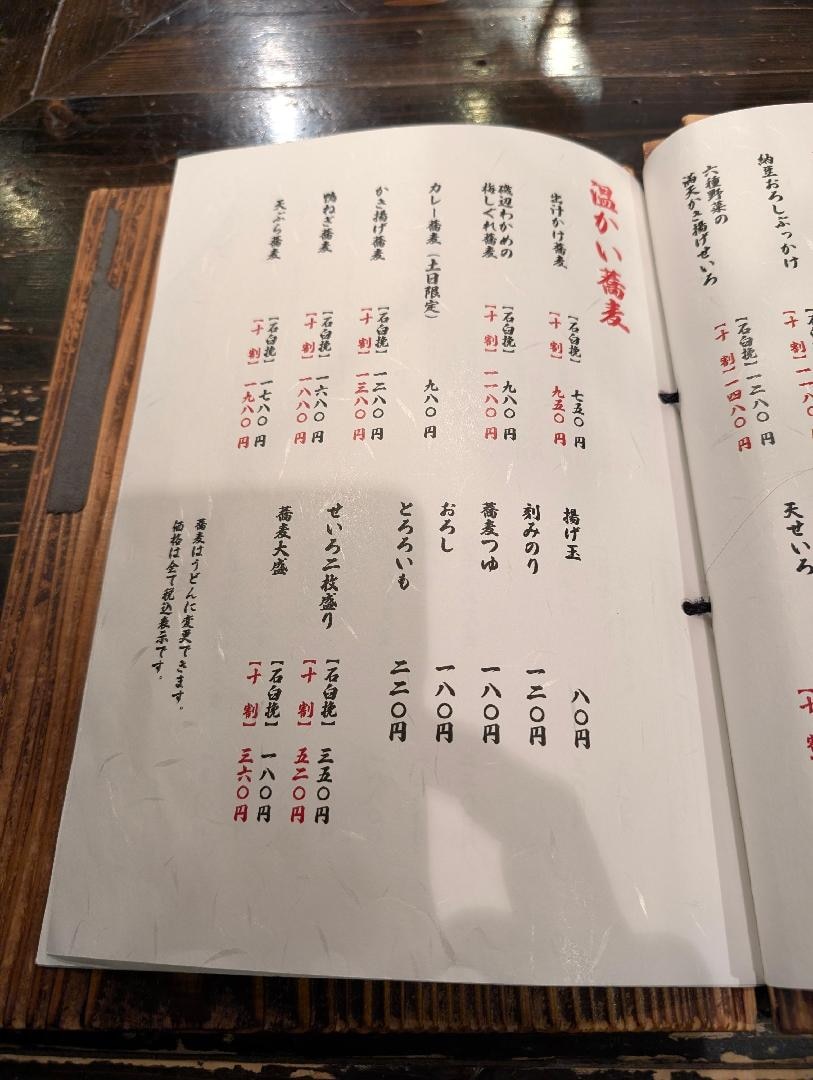 納豆おろしぶっかけ
六種野菜の
満天かき揚げせいろ
【石臼挽】一二八〇円
【十割】一四八〇円
天せいろ
温かい蕎麦
出汁かけ蕎麦
【石臼挽】七五〇円
【十割】九五〇円
磯辺わかめの
梅しぐれ蕎麦
【石臼挽】九八〇円
【十割】一一八〇円
カレー蕎麦(土日限定)
九八〇円
かき揚げ蕎麦
【石臼挽】一二八〇円
【十割】一三八〇円
鴨ねぎ蕎麦
【石臼挽】一六八〇円
【十割】一八八〇円
天ぷら蕎麦
【石臼挽】一七八〇円
【十割】一九八〇円
揚げ玉 八〇円
刻みのり 一二〇円
蕎麦つゆ 一八〇円
おろし 一八〇円
とろろいも 二二〇円
せいろ二枚盛り
【石臼挽】三五〇円
【十割】五二〇円
蕎麦大盛
【石臼挽】一八〇円
【十割】三六〇円
蕎麦はうどんに変更できます。
価格は全て税込表示です。